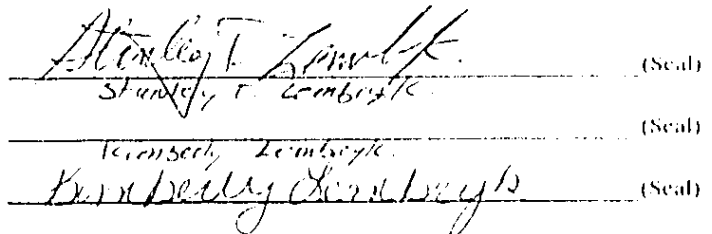 Stanley T. Zembryk. (Seal)
Stanley T. Zembryk.
(Seal)
Kimberly Zembryk.
Kimberly Zembryk (Seal)